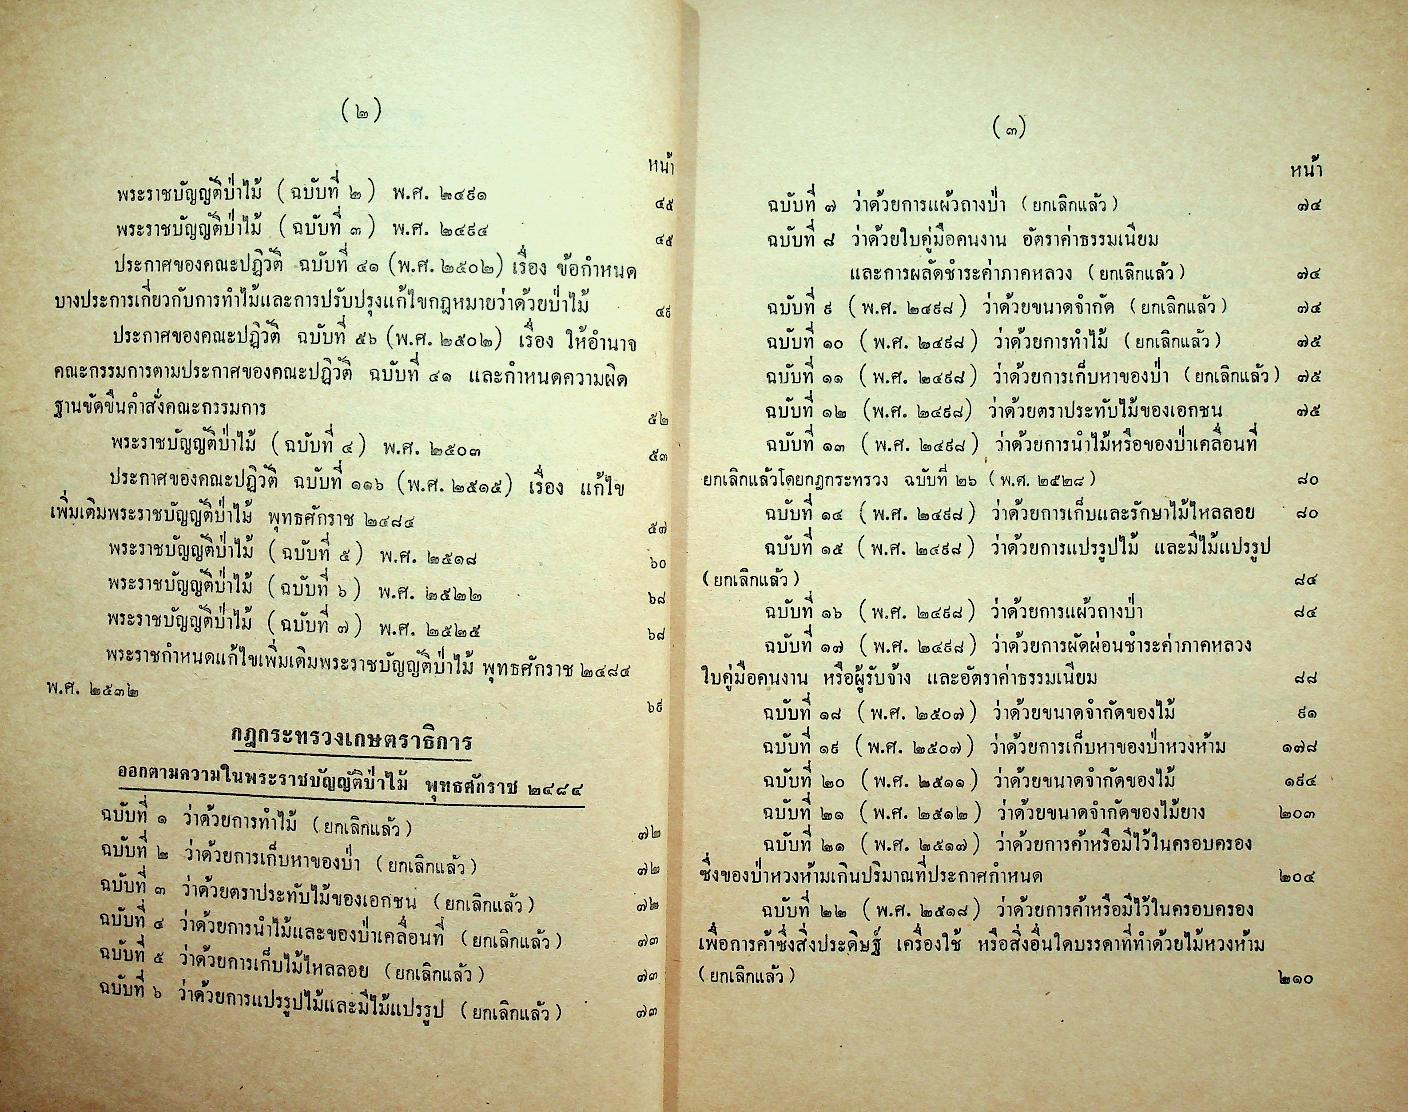 (๒)
หน้า
พระราชบัญญัติป่าไม้ (ฉบับที่ ๒) พ.ศ. ๒๔๙๑ ๔๕
พระราชบัญญัติป่าไม้ (ฉบับที่ ๓) พ.ศ. ๒๔๙๔ ๔๕
ประกาศของคณะปฏิวัติ ฉบับที่ ๔๑ (พ.ศ. ๒๕๐๒) เรื่อง ข้อกำหนด
บางประการเกี่ยวกับการทำไม้และการปรับปรุงแก้ไขกฎหมายว่าด้วยป่าไม้ ๔๙
ประกาศของคณะปฏิวัติ ฉบับที่ ๕๖ (พ.ศ. ๒๕๐๒) เรื่อง ให้อำนาจ
คณะกรรมการตามประกาศของคณะปฏิวัติ ฉบับที่ ๔๑ และกำหนดความผิด
ฐานขัดขืนคำสั่งคณะกรรมการ ๕๒
พระราชบัญญัติป่าไม้ (ฉบับที่ ๔) พ.ศ. ๒๕๐๓ ๕๓
ประกาศของคณะปฏิวัติ ฉบับที่ ๑๑๖ (พ.ศ. ๒๕๑๕) เรื่อง แก้ไข
เพิ่มเติมพระราชบัญญัติป่าไม้ พุทธศักราช ๒๔๘๔ ๕๗
พระราชบัญญัติป่าไม้ (ฉบับที่ ๕) พ.ศ. ๒๕๑๘ ๖๐
พระราชบัญญัติป่าไม้ (ฉบับที่ ๖) พ.ศ. ๒๕๒๒ ๖๘
พระราชบัญญัติป่าไม้ (ฉบับที่ ๗) พ.ศ. ๒๕๒๕ ๖๘
พระราชกำหนดแก้ไขเพิ่มเติมพระราชบัญญัติป่าไม้ พุทธศักราช ๒๔๘๔
พ.ศ. ๒๕๓๒ ๖๙
กฎกระทรวงเกษตราธิการ
ออกตามความในพระราชบัญญัติป่าไม้ พุทธศักราช ๒๔๘๔
ฉบับที่ ๑ ว่าด้วยการทำไม้ (ยกเลิกแล้ว) ๗๒
ฉบับที่ ๒ ว่าด้วยการเก็บหาของป่า (ยกเลิกแล้ว) ๗๒
ฉบับที่ ๓ ว่าด้วยตราประทับไม้ของเอกชน (ยกเลิกแล้ว) ๗๒
ฉบับที่ ๔ ว่าด้วยการนำไม้และของป่าเคลื่อนที่ (ยกเลิกแล้ว) ๗๓
ฉบับที่ ๕ ว่าด้วยการเก็บไม้ไหลลอย (ยกเลิกแล้ว) ๗๓
ฉบับที่ ๖ ว่าด้วยการแปรรูปไม้และมีไม้แปรรูป (ยกเลิกแล้ว) ๗๓
(๓)
หน้า
ฉบับที่ ๗ ว่าด้วยการแผ้วถางป่า (ยกเลิกแล้ว) ๗๔
ฉบับที่ ๘ ว่าด้วยใบคู่มือคนงาน อัตราค่าธรรมเนียม
และการผลัดชำระค่าภาคหลวง (ยกเลิกแล้ว) ๗๔
ฉบับที่ ๙ (พ.ศ. ๒๔๙๘) ว่าด้วยขนาดจำกัด (ยกเลิกแล้ว) ๗๔
ฉบับที่ ๑๐ (พ.ศ. ๒๔๙๘) ว่าด้วยการทำไม้ (ยกเลิกแล้ว) ๗๕
ฉบับที่ ๑๑ (พ.ศ. ๒๔๙๘) ว่าด้วยการเก็บหาของป่า (ยกเลิกแล้ว) ๗๕
ฉบับที่ ๑๒ (พ.ศ. ๒๔๙๘) ว่าด้วยตราประทับไม้ของเอกชน ๗๕
ฉบับที่ ๑๓ (พ.ศ. ๒๔๙๘) ว่าด้วยการนำไม้หรือของป่าเคลื่อนที่
ยกเลิกแล้วโดยกฎกระทรวง ฉบับที่ ๒๖ (พ.ศ. ๒๕๒๘) ๘๐
ฉบับที่ ๑๔ (พ.ศ. ๒๔๙๘) ว่าด้วยการเก็บและรักษาไม้ไหลลอย ๘๐
ฉบับที่ ๑๕ (พ.ศ. ๒๔๙๘) ว่าด้วยการแปรรูปไม้ และมีไม้แปรรูป
(ยกเลิกแล้ว) ๘๔
ฉบับที่ ๑๖ (พ.ศ. ๒๔๙๘) ว่าด้วยการแผ้วถางป่า ๘๔
ฉบับที่ ๑๗ (พ.ศ. ๒๔๙๘) ว่าด้วยการผัดผ่อนชำระค่าภาคหลวง
ใบคู่มือคนงาน หรือผู้รับจ้าง และอัตราค่าธรรมเนียม ๘๘
ฉบับที่ ๑๘ (พ.ศ. ๒๕๐๗) ว่าด้วยขนาดจำกัดของไม้ ๙๑
ฉบับที่ ๑๙ (พ.ศ. ๒๕๐๗) ว่าด้วยการเก็บหาของป่าหวงห้าม ๑๗๘
ฉบับที่ ๒๐ (พ.ศ. ๒๕๑๑) ว่าด้วยขนาดจำกัดของไม้ ๑๙๔
ฉบับที่ ๒๑ (พ.ศ. ๒๕๑๒) ว่าด้วยขนาดจำกัดของไม้ยาง ๒๐๓
ฉบับที่ ๒๑ (พ.ศ. ๒๕๑๗) ว่าด้วยการค้าหรือมีไว้ในครอบครอง
ซึ่งของป่าหวงห้ามเกินปริมาณที่ประกาศกำหนด ๒๐๔
ฉบับที่ ๒๒ (พ.ศ. ๒๕๑๘) ว่าด้วยการค้าหรือมีไว้ในครอบครอง
เพื่อการค้าซึ่งสิ่งประดิษฐ์ เครื่องใช้ หรือสิ่งอื่นใดบรรดาที่ทำด้วยไม้หวงห้าม
(ยกเลิกแล้ว) ๒๑๐